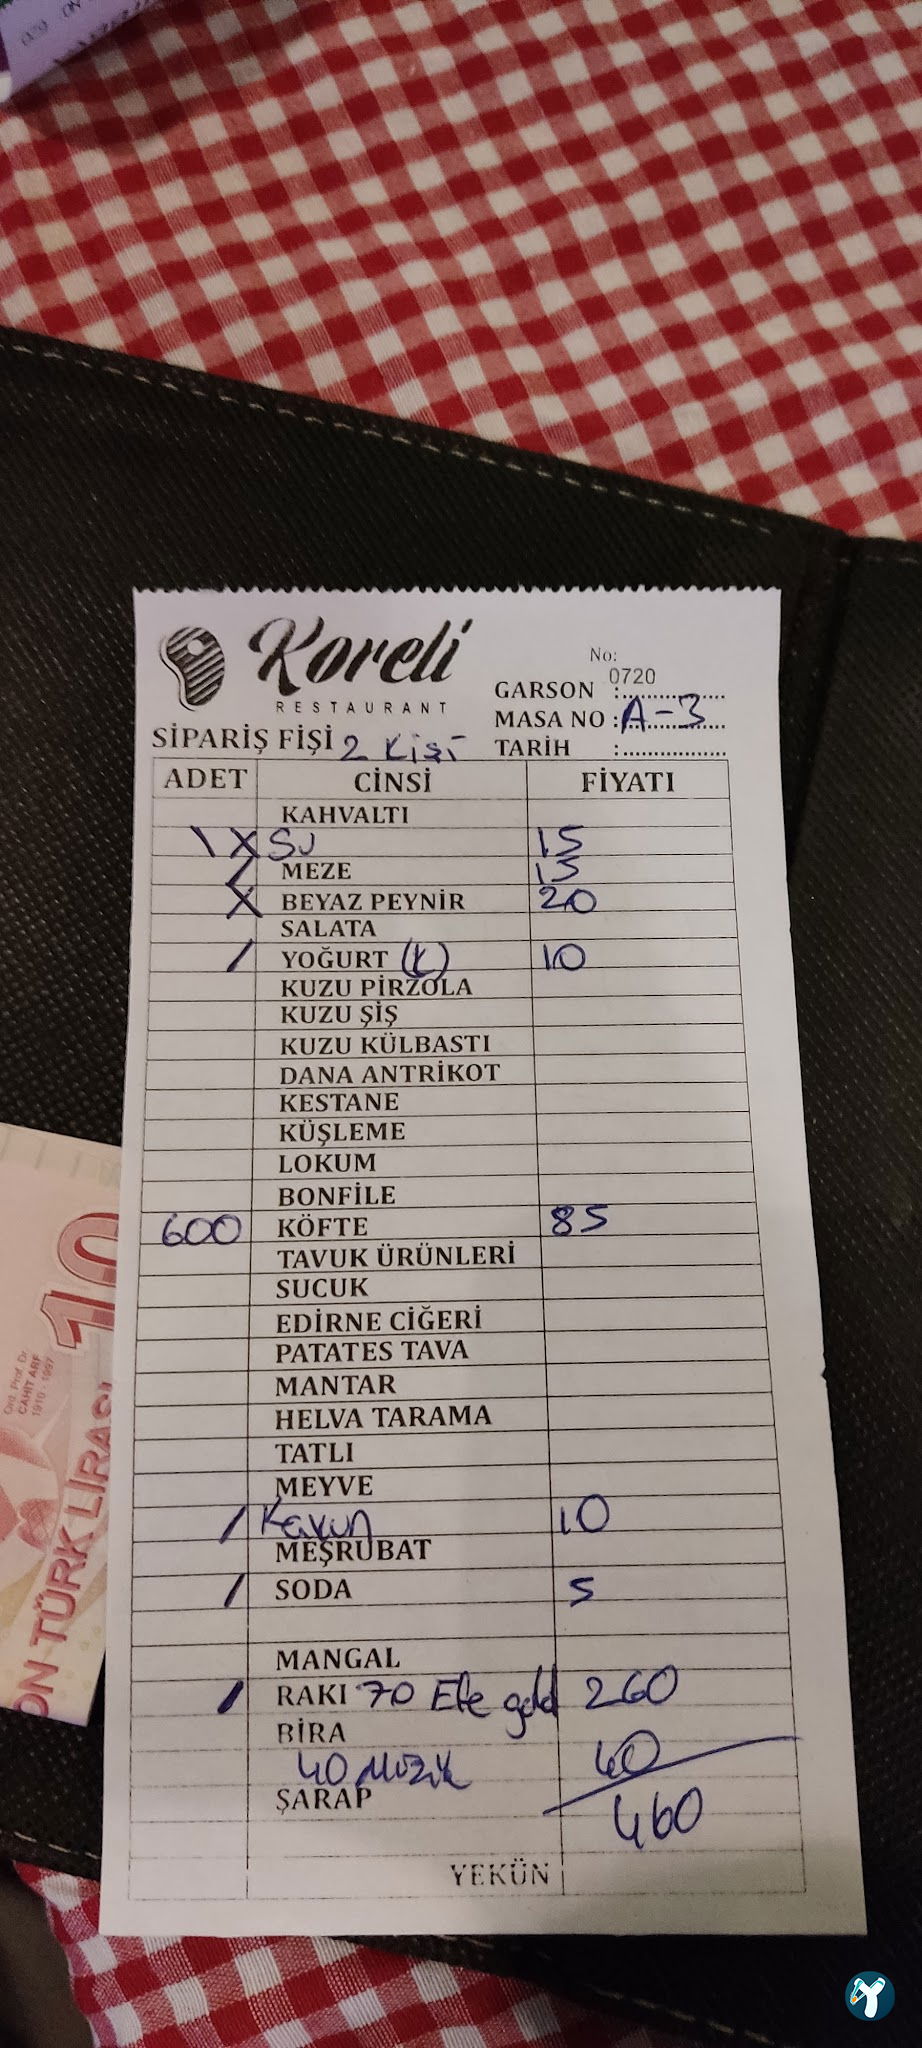 Koreli
RESTAURANT
No:
0720
GARSON :
MASA NO : A-3
SİPARİŞ FİŞİ 2 Kişi
TARİH :
ADET CİNSİ FİYATI
KAHVALTI
\ X SU 15
/ MEZE 15
X BEYAZ PEYNİR 20
SALATA
/ YOĞURT (K) 10
KUZU PİRZOLA
KUZU ŞİŞ
KUZU KÜLBASTI
DANA ANTRİKOT
KESTANE
KÜŞLEME
LOKUM
BONFİLE
600 KÖFTE 85
TAVUK ÜRÜNLERİ
SUCUK
EDİRNE CİĞERİ
PATATES TAVA
MANTAR
HELVA TARAMA
TATLI
MEYVE
/ Kavun 10
MEŞRUBAT
/ SODA 5
MANGAL
/ RAKI 70 Efe gold 260
BİRA
40 Müzik 40
ŞARAP
460
YEKÜN
10
Ord. Prof. Dr.
CAHİT ARF
1910 - 1997
ON TÜRK LİRASI
Y